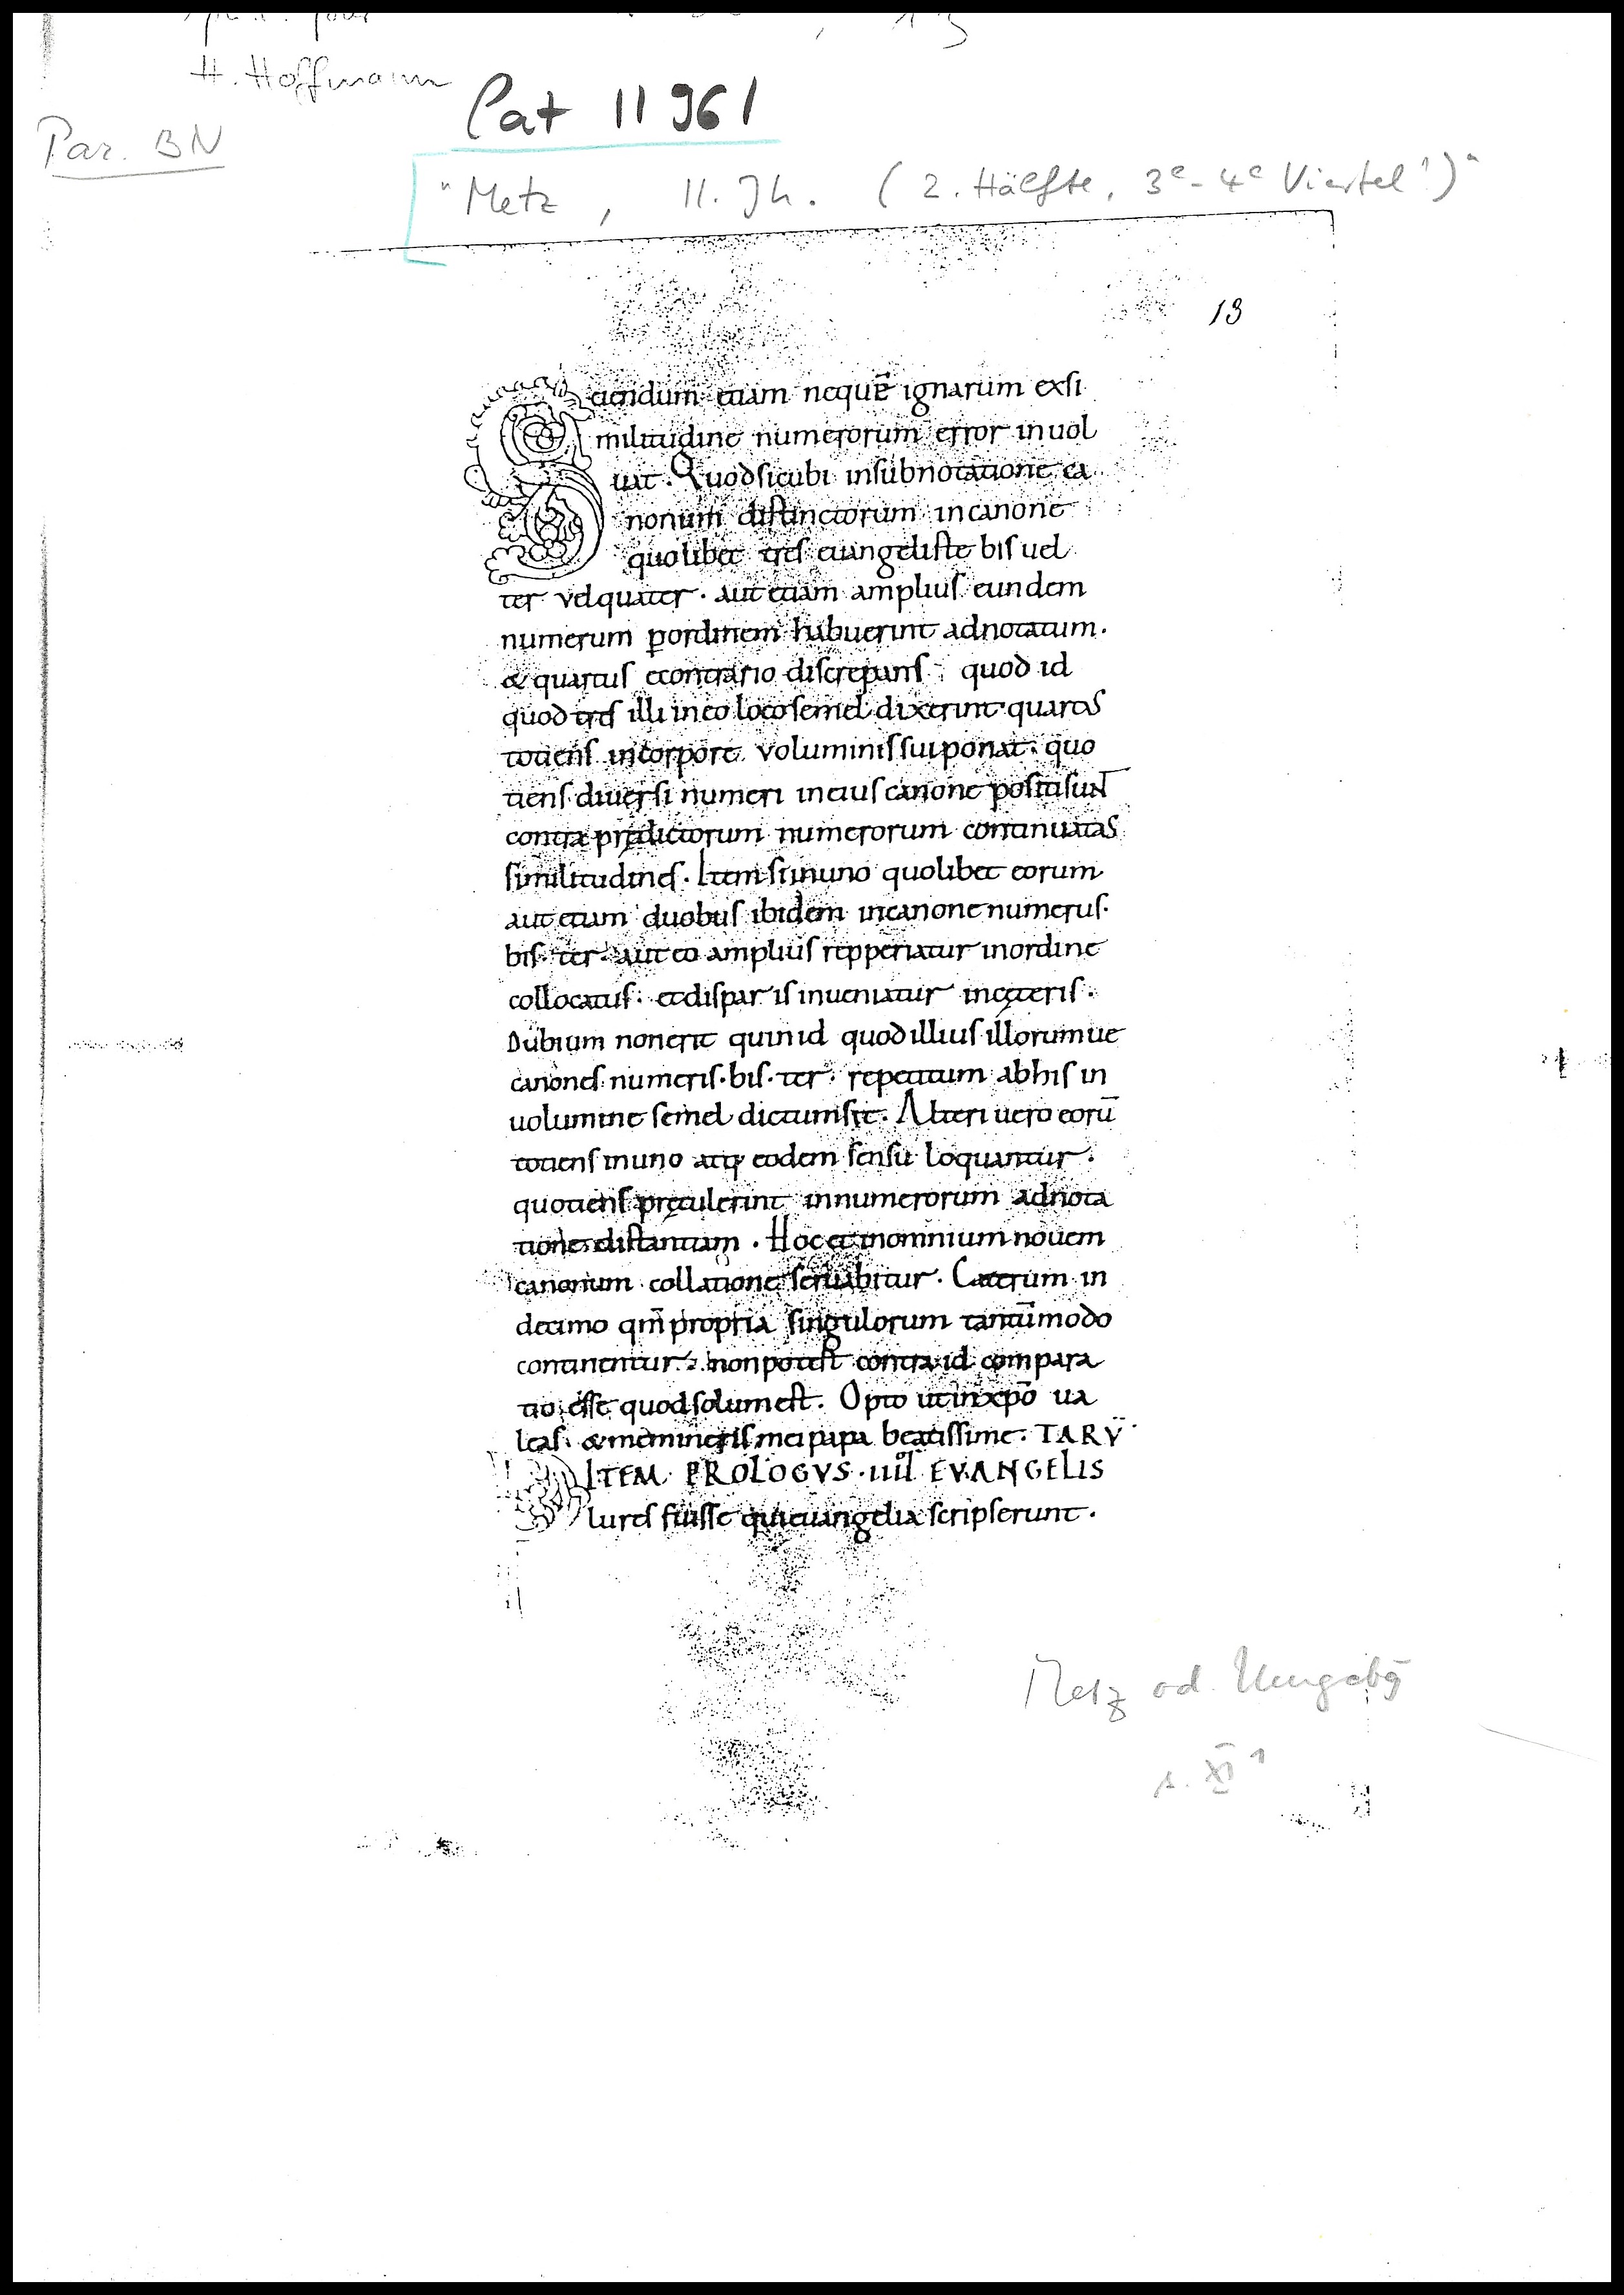 H. Hoffmann
Lat 11961
Par. BN
"Metz, 11. Jh. (2. Hälfte, 3e-4e Viertel!)"
13
Sciendum etiam nequē ignarum exsi
militudine numerorum error inuol
uat. Quodsicubi insubnotatione ca
nonum distinctorum incanone
quolibet tres euangeliste bis uel
ter vel quater. aut etiam amplius eundem
numerum ꝑordinem habuerint adnotatum.
& quartus econtrario discrepans: quod id
quod tres illi in eo loco semel dixerint quartus
totiens incorpore voluminis sui ponat: quo
tiens diuersi numeri in eius canone positi sunt
contra prędictorum numerorum continuatas
similitudines. Item si in uno quolibet eorum
aut etiam duobus ibidem incanone numerus.
bis. ter. aut eo amplius repperiatur inordine
collocatus: et dispar is inueniatur incęteris.
Dubium non erit quin id quod illius illorumue
canones numeris. bis. ter. repetitum ab his in
uolumine semel dictum sit. Alteri uero eorū
totiens inuno atq; eodem sensu loquantur.
quotiens prętulerint innumerorum adnota
tione distantiam. Hoc et inomnium nouem
canonum collatione seruabitur. Caterum in
decimo qm̄ propria singulorum tantūmodo
continentur: non potest contra id compara
tio esse quod solum est. Opto ut in xp̄o ua
leas. & memineris mei papa beatissime. TARV̄
ITEM PROLOGVS. IIIIor EVANGELIS
Plures fuisse qui euangelia scripserunt.
Metz od. Umgebg
s. XI 1